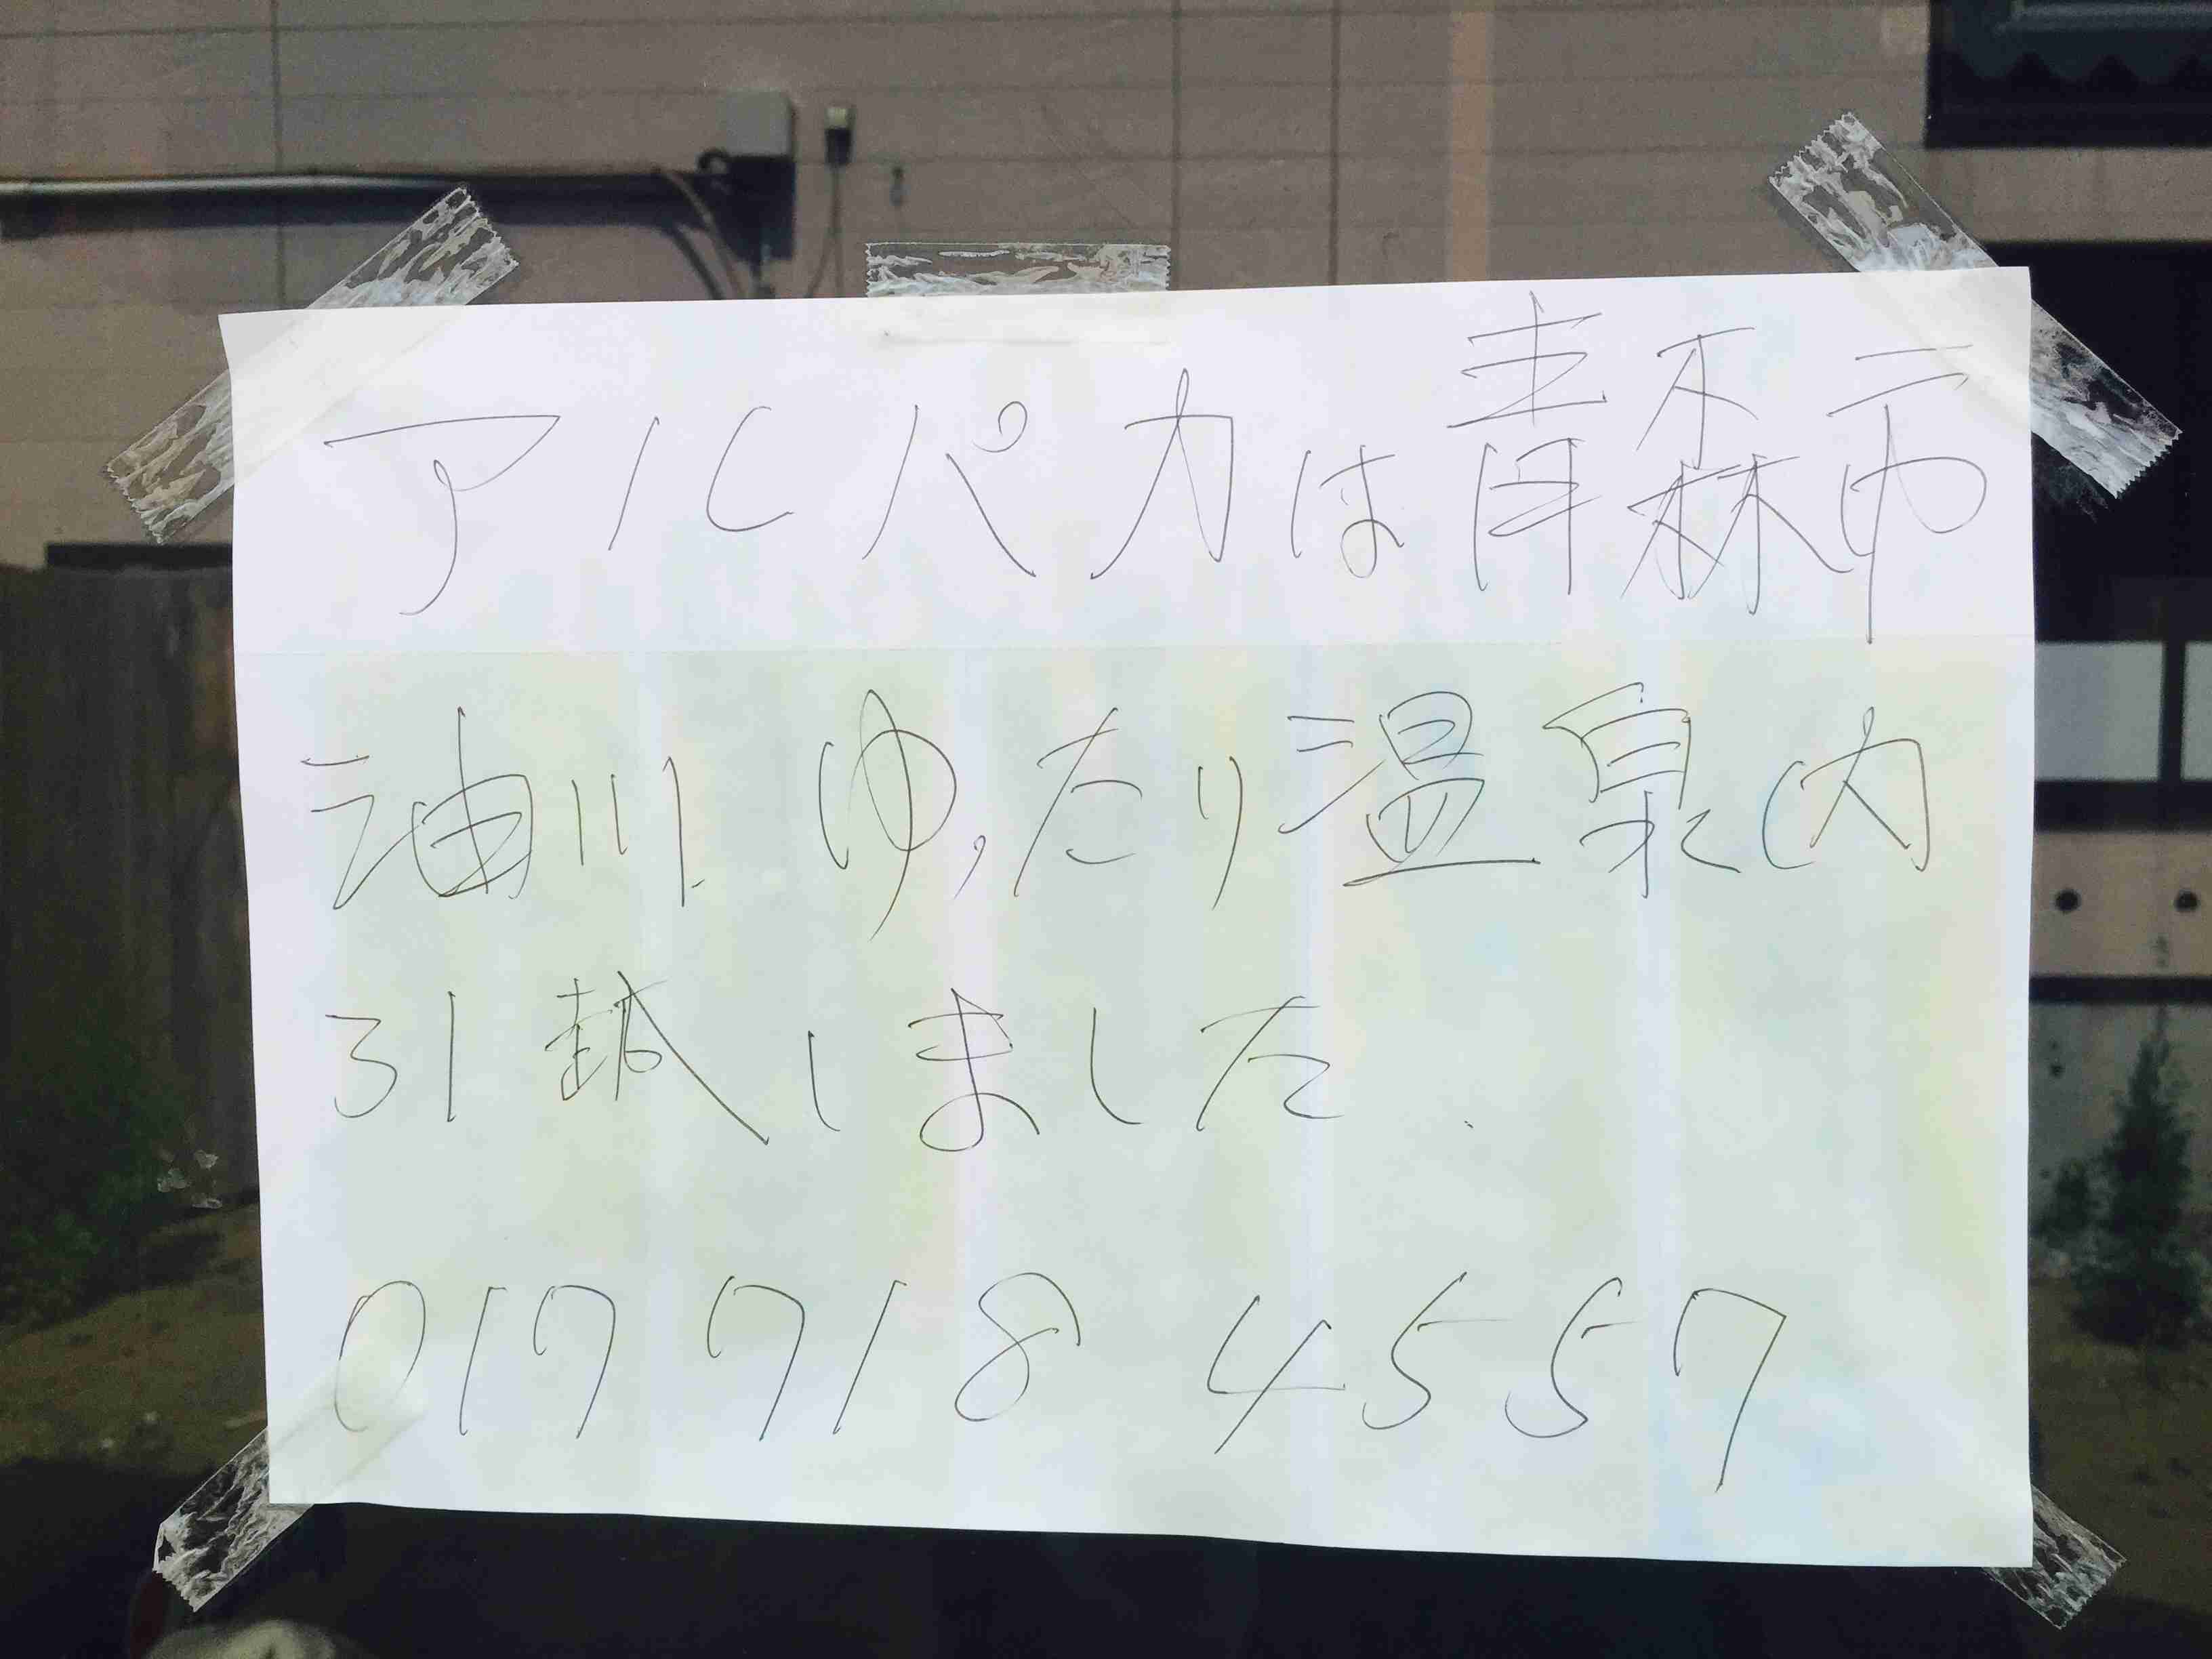 アルパカは青森市
油川 ゆったり温泉内
引越しました.
017 718 4557